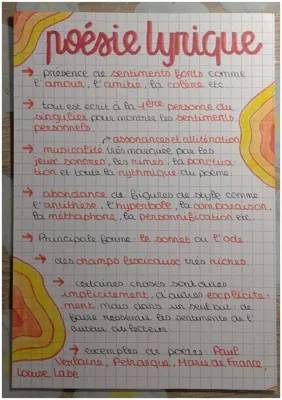 poésie lyrique
→ présence de sentiments forts comme
l'amour, l'amitié, la colère etc.
→ tout est écrit à la 1ère personne du
singulier pour montrer les sentiments
personnels.
↗ assonances et allitération
→ musicalité très marquée par les
jeux sonores, les rimes, la ponctua-
tion et toute la rythmique du poème.
→ abondance de figures de style comme
l'antithèse, l'hyperbole, la comparaison,
la méthaphore, la personnification etc.
→ Principale forme: le sonnet ou l'ode.
→ des champs lexicaux très riches.
→ certaines choses sont dites
implicitement, d'autres explicite-
ment mais dans un seul but: de
faire ressentir les sentiments de l'
auteur au lecteur.
→ exemples de poètes: Paul
Verlaine, Petrarque, Marie de France,
Louise Labé